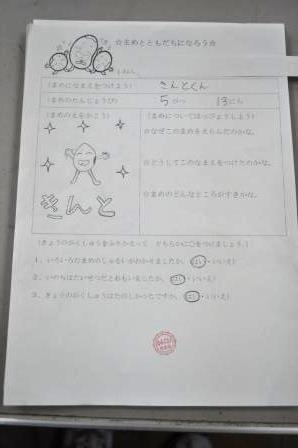 ☆まめとともだちになろう☆
(まめになまえをつけよう) きんとくん
(まめのたんじょうび) 5がつ 13にち
(まめのえをかこう) (まめについてはっぴょうしよう)
☆なぜこのまめをえらんだのかな。
☆どうしてこのなまえをつけたのかな。
☆まめのどんなところがすきかな。
きんと
(きょうのがくしゅうをふりかえって どちらかに○をつけましょう。)
1、いろいろなまめのしゅるいがわかりましたか。(はい・いいえ)
2、いのちはたいせつだとおもいましたか。(はい・いいえ)
3、きょうのがくしゅうはたのしかったですか。(はい・いいえ)